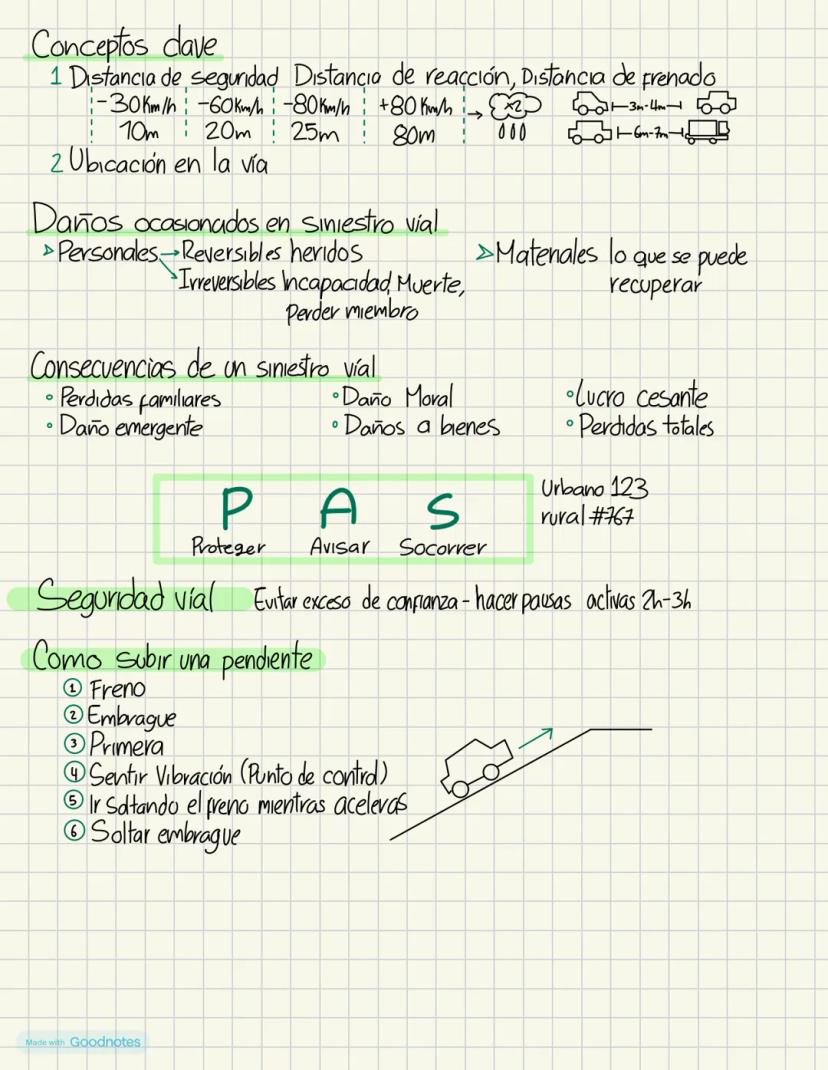 Conceptos clave
1 Distancia de seguridad Distancia de reacción, Distancia de frenado
-30Km/h -60Km/h -80Km/h +80 Km/h → x2 3m-4m
10m 20m 25m 80m 6m-7m
2 Ubicación en la vía
Daños ocasionados en siniestro víal
Personales → Reversibles heridos
Irreversibles Incapacidad, Muerte,
perder miembro
Materiales lo que se puede
recuperar
Consecuencias de un siniestro víal
Perdidas familiares
Daño Moral
Lucro cesante
Daño emergente
Daños a bienes
Perdidas totales
P A S
Proteger Avisar Socorrer
Urbano 123
rural #767
Seguridad víal Evitar exceso de confianza - hacer pausas activas 2h-3h
Como subir una pendiente
1 Freno
2 Embrague
3 Primera
4 Sentir Vibración (Punto de control)
5 Ir Soltando el freno mientras aceleras
6 Soltar embrague
Made with Goodnotes